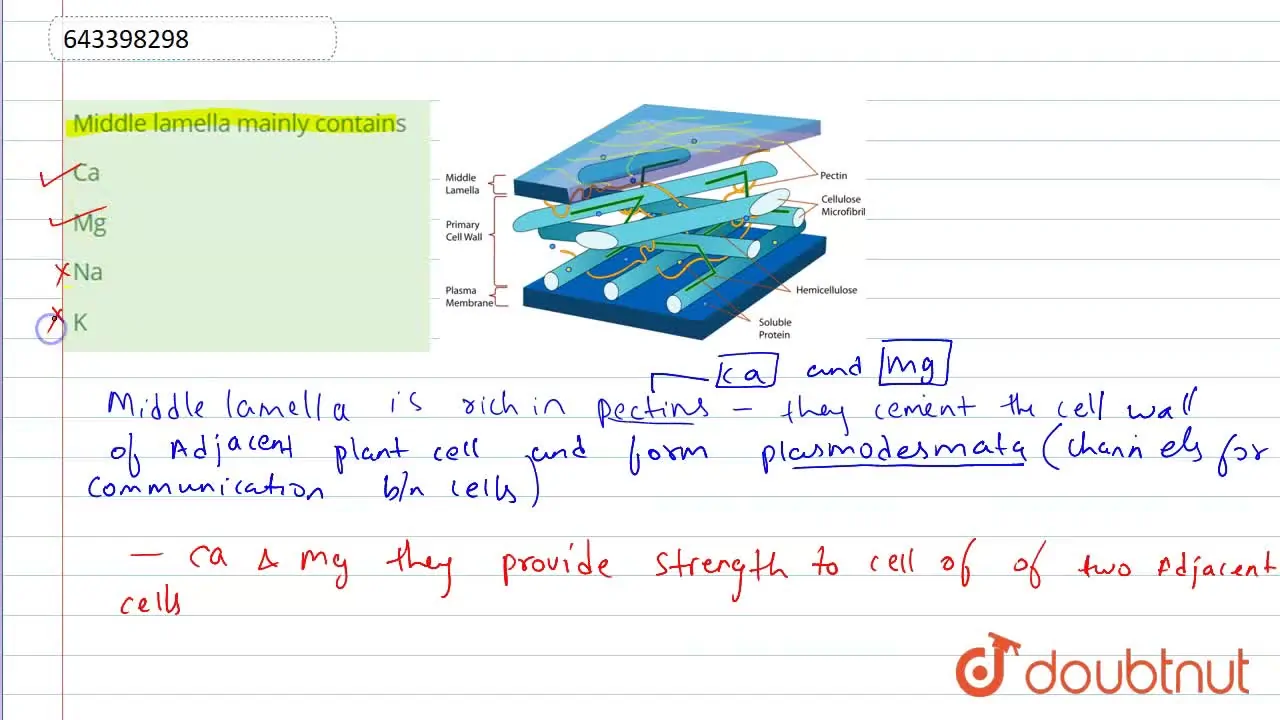 643398298
Middle lamella mainly contains
Ca
Mg
Na
K
Middle
Lamella
Primary
Cell Wall
Plasma
Membrane
Pectin
Cellulose
Microfibril
Hemicellulose
Soluble
Protein
ca and mg
Middle lamella is rich in pectins - they cement the cell wall
of Adjacent plant cell and form plasmodesmata (channels for
communication b/n cells)
- ca & mg they provide strength to cell of of two Adjacent
cells
doubtnut